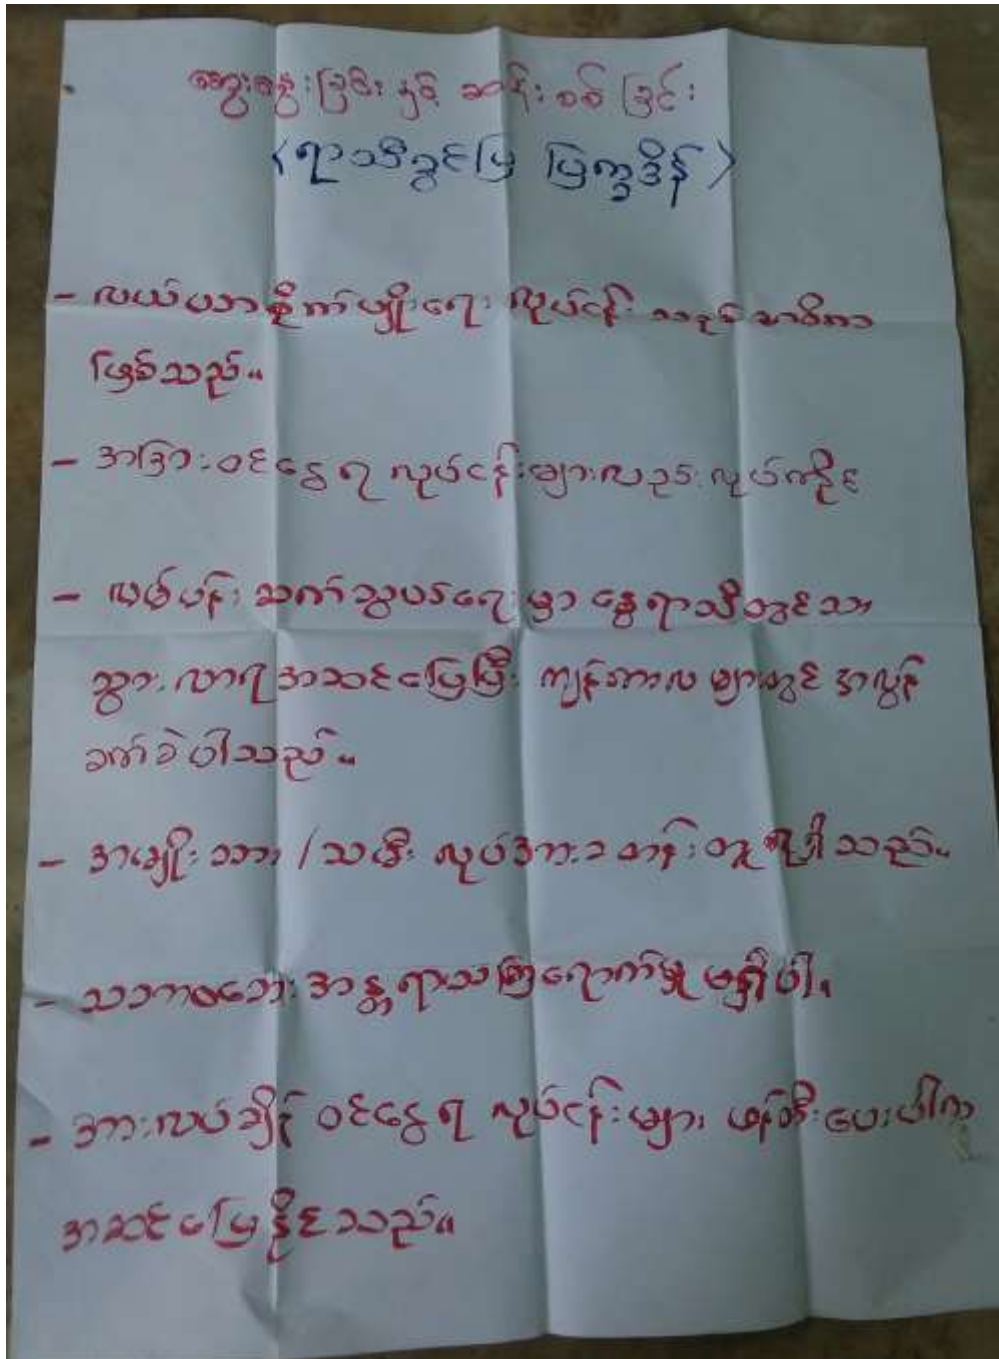 ဆွေးနွေးခြင်း နှင့် ဆန်းစစ်ခြင်း
(ရာသီခွင်ပြ ပြက္ခဒိန်)
- လယ်ယာစိုက်ပျိုးရေး လုပ်ငန်း သည် အဓိက
ဖြစ်သည်။
- အခြားဝင်ငွေရ လုပ်ငန်းများလည်း လုပ်ကိုင်
- လမ်းပန်း ဆက်သွယ်ရေးမှာ နွေရာသီတွင်သာ
သွားလာရ အဆင်ပြေပြီး ကျန်ကာလများတွင် အလွန်
ခက်ခဲပါသည်။
- အမျိုးသား / သမီး လုပ်အားခ တန်းတူရရှိပါသည်။
- သဘာဝဘေး အန္တရာယ်ကြရောက်မှု မရှိပါ။
- အားလပ်ချိန် ဝင်ငွေရ လုပ်ငန်းများ ဖန်တီးပေးပါက
အဆင်ပြေနိုင်သည်။